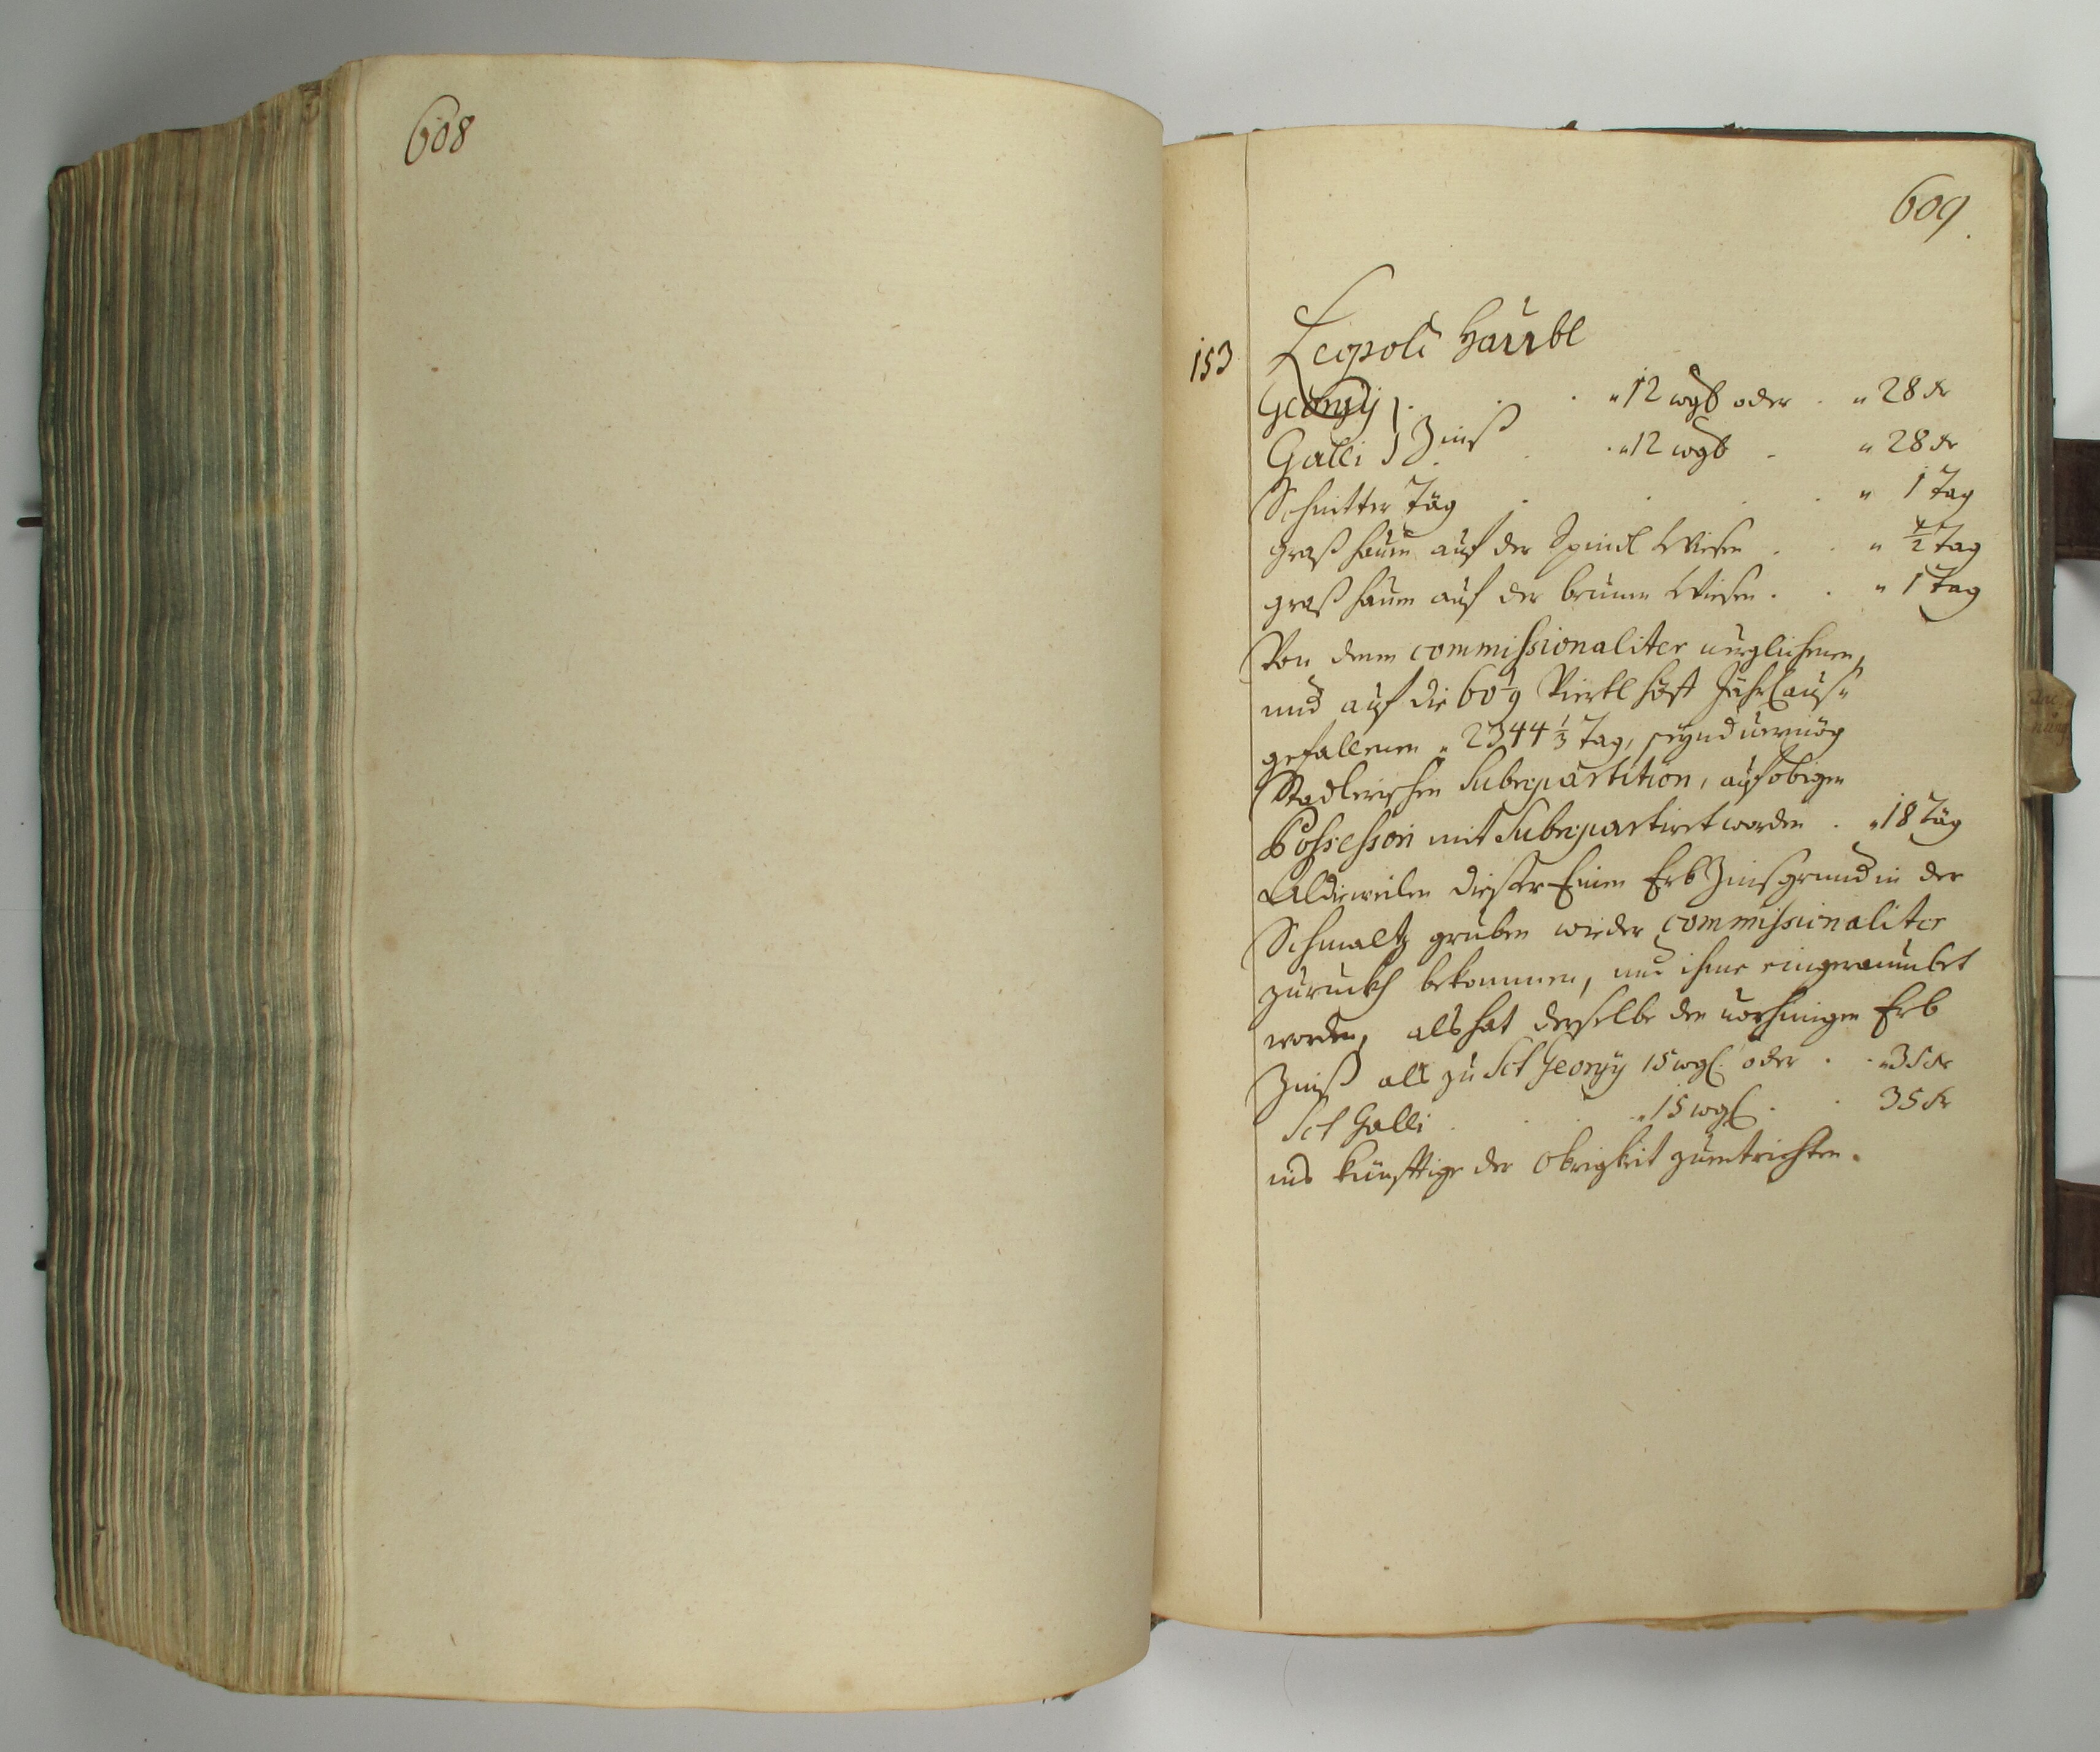 608
609
153 Leopold Häurbl
Georgÿ . . . " 12 wgl oder . " 28 kr
Galli } Zinß . . " 12 wgl . " 28 kr
Schnitter Täg . . . . " 1 Tag
Graß hauen auf der Spindl Wiesen . . " ½ Tag
graß hauen auf der brunn Wiesen . . " 1 Tag
Von denen commissionaliter verglichenen,
und auf die 60 1/9 Viertl höff Jährl aus"
gefallenen " 2344 1/3 Tag, seÿnd vermög
Stadlerischen Subrepartition, auf obigen
Possesson mit Subrepartiret worden . " 18 Täg
Alldieweilen dießer Einen Erb Zinßgrund in der
Schmaltz gruben wieder commissionaliter
zuruckh bekommen, und ihme eingeraumbet
worden, als hat derselbe den vorhinigen Erb
Zinß als zu Sct Georgÿ 15 wgl. oder . . " 35 kr
Sct Galli . . . " 15 wgl . . 35 kr
ins künfftige der Obrigkeit zuentrichten.